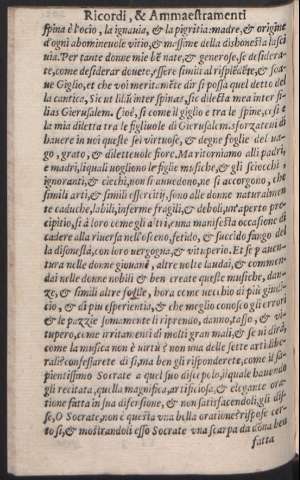 Ricordi, & Ammaestramenti
spina è l'ocio, la ignauia, & la pigritia: madre, & origine
d'ogni abomineuole vitio, & massime della dishonesta lasci
uia. Per tanto donne mie bē nate, & generose, se desidera-
te, come desiderar douete, essere simili al risplēdēte, & soa-
ue Giglio, et che voi meritamēte dir si possa quel detto del
la cantica, Sicut lilium inter spinas, sic dilecta mea inter fi-
lias Gierusalem. Cioè, si come il giglio e tra le spine, cosi e
la mia diletta tra le figliuole di Gierusalem. sforzateui di
hauere in voi queste sei virtuose, & degne foglie del ua-
go, grato, & diletteuole fiore. Ma ritorniamo alli padri,
e madri, liquali uogliono le figlie musiche, & gli sciocchi
ignoranti, & ciechi, non si auuedono, ne si accorgono, che
simili arti, & simili essercitij, sono alle donne naturalmen
te caduche, labili, inferme fragili, & deboli, un'aperto pre-
cipitio, si à loro come gli altri, e una manifesta occasione di
cadere alla riuersa nell'osceno, fetido, & succido fango del
la disonestà, con loro uergogna, & vituperio. Et se p auen-
tura nelle donne giouani, altre uolte laudai, & commen-
dai nelle donne nobili & ben create queste musiche, dan-
ze, & simili altre folle, hora come uecchio di più giudi-
cio, & di piu esperientia, & che meglio conosco gli errori
& le pazzie sommamente li riprendo, danno, tasso, & vi-
tupero, come irritamenti di molti gran mali, & se ui dirà,
come la musica non è uirtù e non una delle sette arti libe-
rali? confessarete di si, ma ben gli risponderete, come il sa-
pientissimo Socrate a quel suo discepolo, il quale hauendo
gli recitata, quella magnifica, artificiosa, & elegante ora-
tione fatta in sua difensione, & non satisfacendoli, gli dis-
se, O Socrate, non è questa vna bella oratione? rispose cer-
to si, & mostrandoli esso Socrate vna scarpa da dona ben
fatta